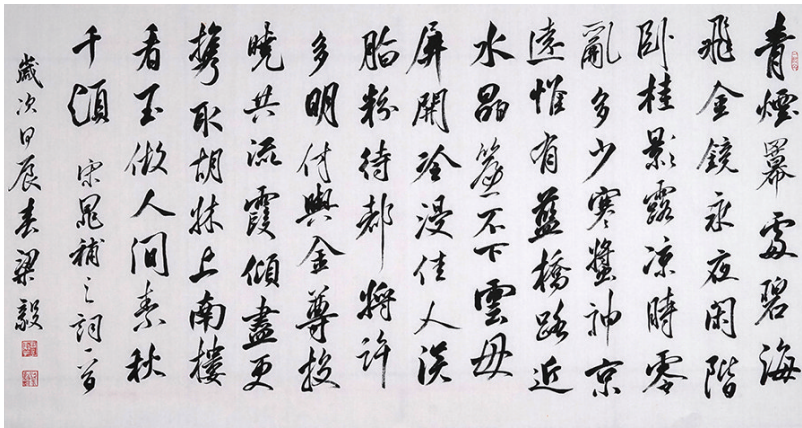 青煙冪處碧海
飛金鏡永夜閑階
卧桂影露凉時零
亂多少寒螿神京
遠惟有藍橋路近
水晶簾不下雲母
屏開冷浸佳人淡
脂粉待都將許
多明付與金尊投
曉共流霞傾盡更
攜取胡牀上南樓
看玉做人間素秋
千頃 宋晁補之詞一首
歲次辰春梁毅